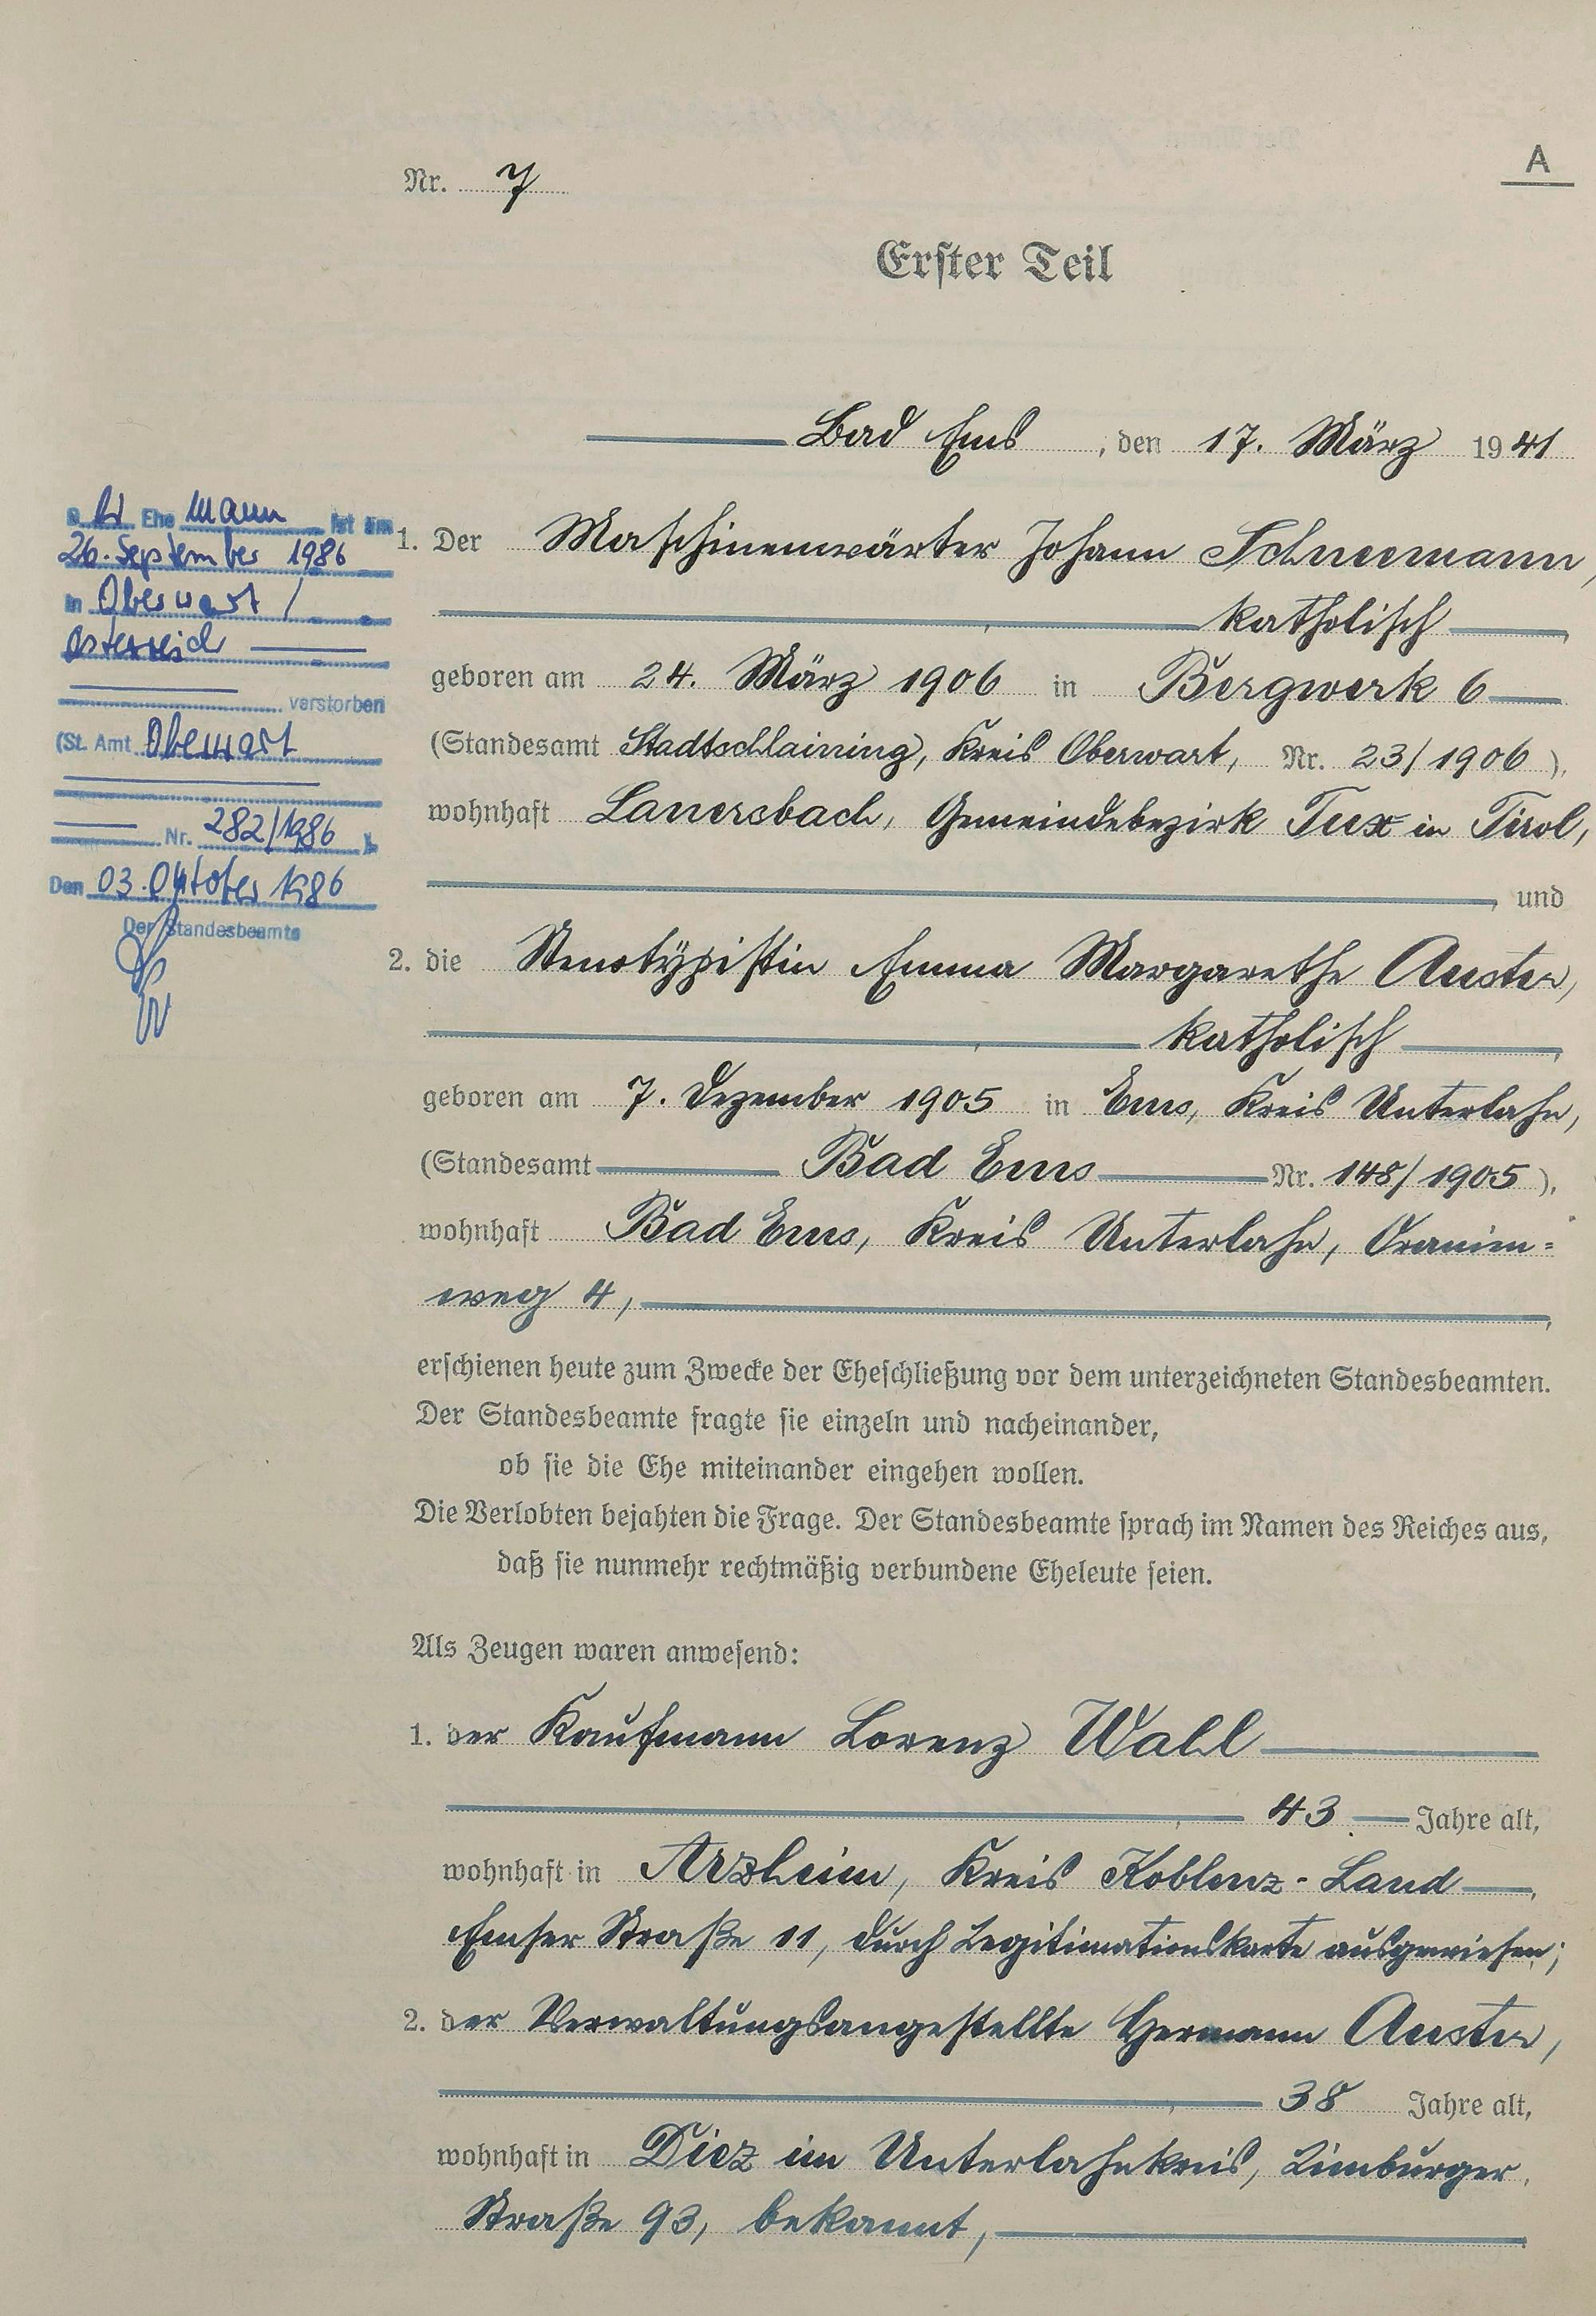 A
Nr. 7
Erster Teil
Bad Ems, den 17. März 1941
Der Ehemann ist am
26. September 1986
in Oberwart /
Österreich
verstorben
(St. Amt Oberwart
Nr. 282/1986 ).
Den 03. Oktober 1986
Der Standesbeamte
1. Der Maschinenwärter Johann Schneemann,
katholisch,
geboren am 24. März 1906 in Bergwerk 6
(Standesamt Stadtschlaining, Kreis Oberwart, Nr. 23/1906),
wohnhaft Lanersbach, Gemeindebezirk Tux in Tirol,
, und
2. die Stenotypistin Emma Margarethe Auster,
katholisch,
geboren am 7. Dezember 1905 in Ems, Kreis Unterlahn,
(Standesamt Bad Ems Nr. 148/1905),
wohnhaft Bad Ems, Kreis Unterlahn, Oranien=
weg 4,
erschienen heute zum Zwecke der Eheschließung vor dem unterzeichneten Standesbeamten.
Der Standesbeamte fragte sie einzeln und nacheinander,
ob sie die Ehe miteinander eingehen wollen.
Die Verlobten bejahten die Frage. Der Standesbeamte sprach im Namen des Reiches aus,
daß sie nunmehr rechtmäßig verbundene Eheleute seien.
Als Zeugen waren anwesend:
1. der Kaufmann Lorenz Wahl
43 Jahre alt,
wohnhaft in Arzheim, Kreis Koblenz-Land,
Emser Straße 11, durch Legitimationskarte ausgewiesen;
2. der Verwaltungsangestellte Hermann Auster,
38 Jahre alt,
wohnhaft in Diez im Unterlahnkreis, Limburger
Straße 93, bekannt,